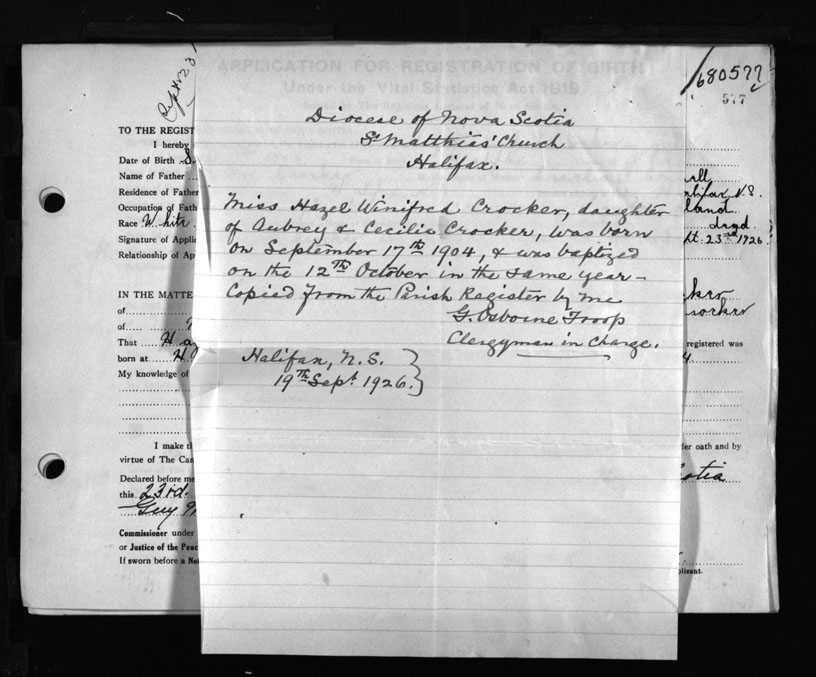 680577
577
APPLICATION FOR REGISTRATION OF BIRTH
Under the Vital Statistics Act 1919
Diocese of Nova Scotia
St Matthias' Church
Halifax.
Miss Hazel Winifred Crocker, daughter
of Aubrey & Cecilia Crocker, was born
on September 17th 1904, & was baptized
on the 12th October in the same year –
Copied from the Parish Register by me
G. Osborne Troop
Clergyman in Charge.
Halifax, N.S.
19th Sept. 1926.
TO THE REGIST
I hereby
Date of Birth
Name of Father
Residence of Father
Occupation of Fath
Race White
Signature of Applic
Relationship of Ap
IN THE MATTE
of
of
That Ha
born at H
My knowledge of
I make th
virtue of The Can
Declared before me
this 23rd.
Guy
Commissioner under
or Justice of the Peac
If sworn before a No
alifax N.S.
land
pt. 23rd 1926
ocker
registered was
4.
er oath and by
otia
plicant.